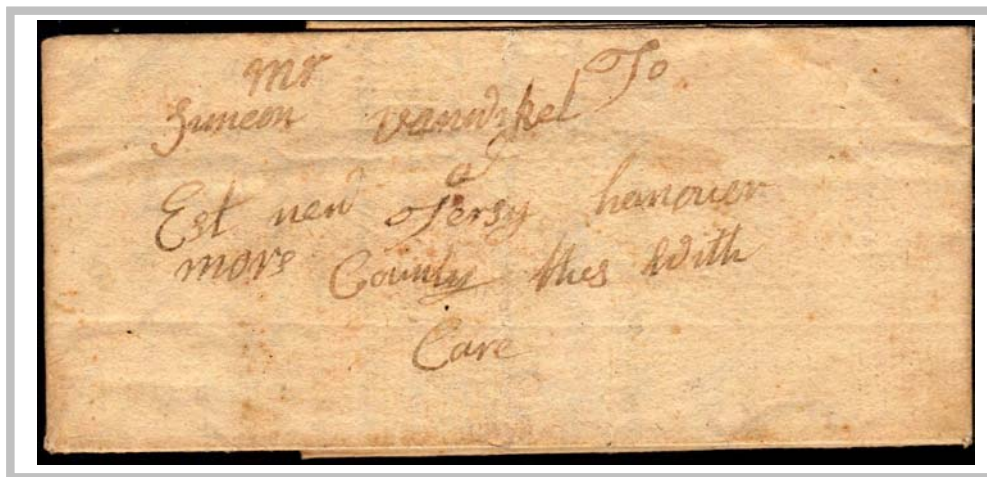 mr To
Simeon vanwikel
Est new Jersy hanover
mors County thes With
Care